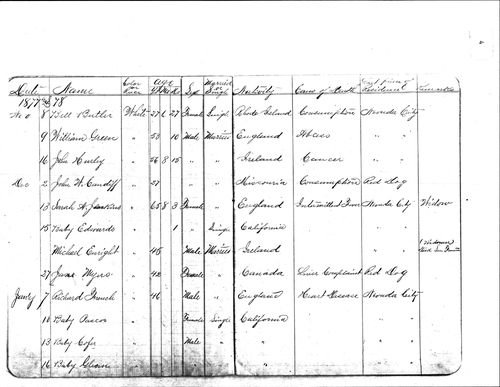 Date Name Color or Race Age Y M D Sex Married or Single Nativity Cause of Death Last place of Residence Remarks
1877 & 78
Nov 8 Bell Butler White 27 6 27 Female Single Rhode Island Consumption Nevada City
9 William Green " 53 10 Male Married England Abcess " "
16 John Hurley " 56 8 15 " " Ireland Cancer " "
Dec 2 John W. Cundiff " 27 " Missouria Consumption Red Dog
13 Sarah A. Jenkins " 65 8 3 Female " England Intermitted Fever Nevada City Widow
15 Baby Edwards " 1 " Single California " "
Michael Enright " 45 Male Married Ireland
27 Jane Myers " 42 Female " Canada Liver Complaint Red Dog
Jany 7 Richard French " 46 Male " England Heart Disease Nevada City
10 Baby Female Single California " "
13 Baby " Male " " "
16 Baby " " " "